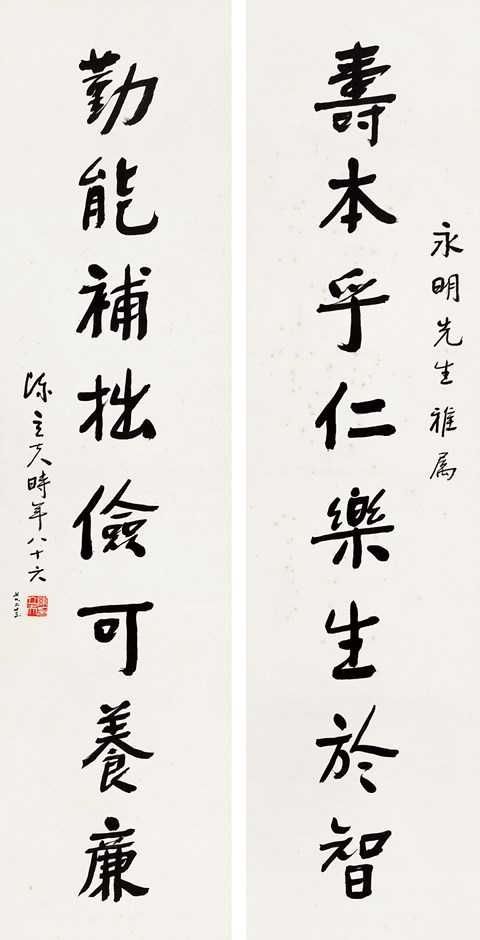 永明先生雅属
壽本乎仁樂生於智
勤能補拙儉可養廉
陳立夫時年八十六